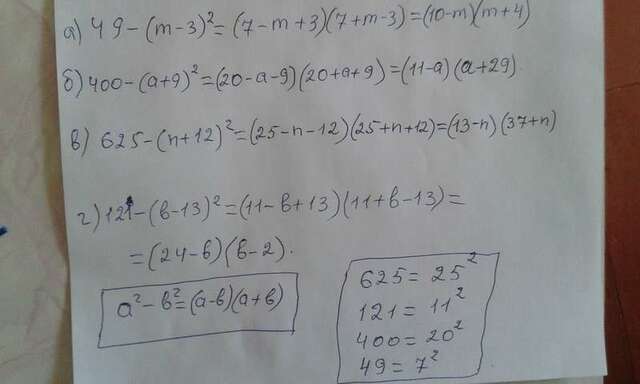 а) 49-(m-3)²=(7-m+3)(7+m-3)=(10-m)(m+4)
б) 400-(a+9)²=(20-a-9)(20+a+9)=(11-a)(a+29)
в) 625-(n+12)²=(25-n-12)(25+n+12)=(13-n)(37+n)
г) 121-(в-13)²=(11-в+13)(11+в-13)=
=(24-в)(в-2).
a²-в²=(a-в)(a+в)
625=25²
121=11²
400=20²
49=7²